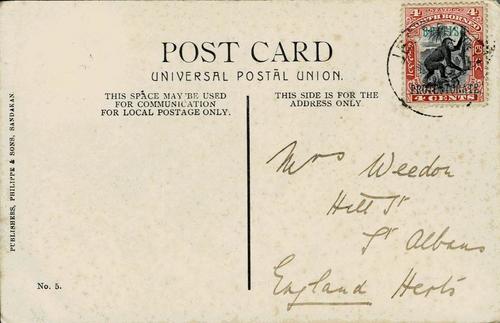 POST CARD
UNIVERSAL POSTAL UNION.
THIS SPACE MAY BE USED
FOR COMMUNICATION
FOR LOCAL POSTAGE ONLY.
THIS SIDE IS FOR THE
ADDRESS ONLY
4 4
NORTH BORNEO
BRITISH
PROTECTORATE
4 CENTS
Mrs Weedon
Hill St
St Albans
England Herts
PUBLISHERS, PHILIPPE & SONS, SANDAKAN.
No. 5.